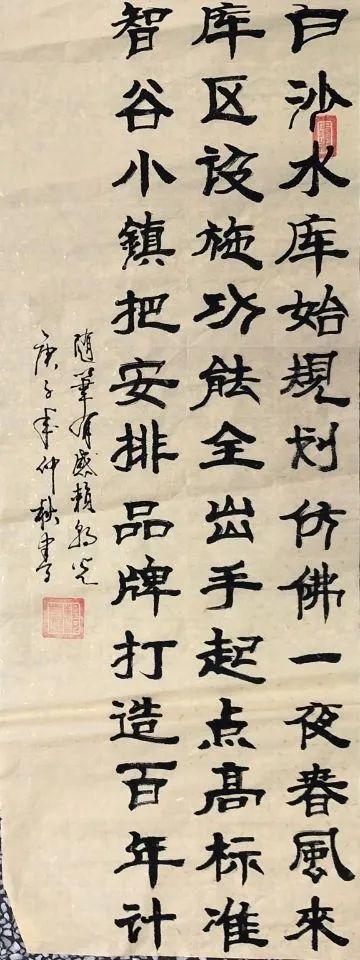 白沙水库始規划仿佛一夜春風来
库区设施功能全出手起点高标准
智谷小鎮把安排品牌打造百年计
随筆有感赖
庚子年仲秋書